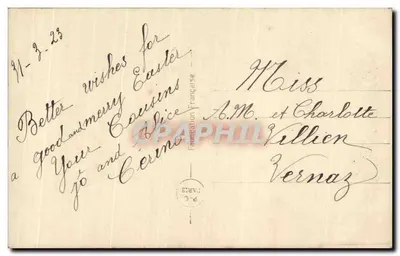 31-3-23
Better wishes for
a good and merry Easter
Your Cousins
Jo and Alice
Cerino
Miss
A.M. et Charlotte
Villien
Vernaz
Fabrication française
PARIS
CPARAMA